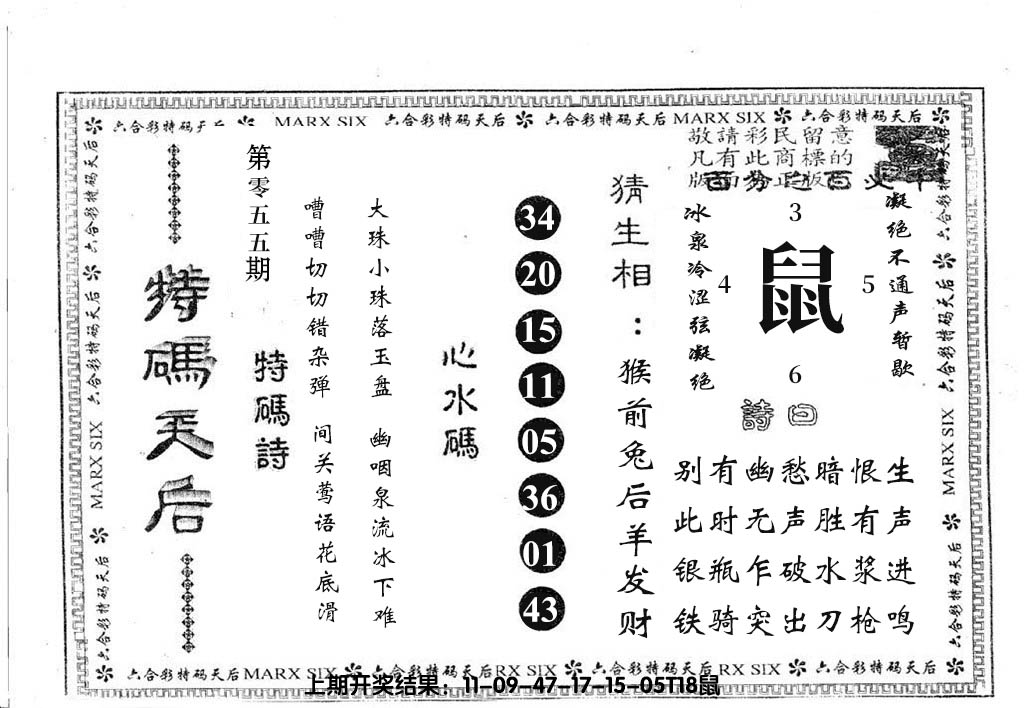 六合彩特码天后 MARX SIX 六合彩特码天后 六合彩特码天后 MARX SIX 六合彩特码天后
敬請彩民留意
凡有此商標的
版面为正版
特碼天后
第零五五期
特碼詩
嘈嘈切切错杂弹 间关莺语花底滑
大珠小珠落玉盘 幽咽泉流冰下难
心水碼
34
20
15
11
05
36
01
43
猜生相：猴前兔后羊发财
冰泉冷涩弦凝绝
3
4
鼠
5
6
凝绝不通声暂歇
詩曰
别有幽愁暗恨生
此时无声胜有声
银瓶乍破水浆进
铁骑突出刀枪鸣
六合彩特码天后 MARX SIX 六合彩特码天后
六合彩特码天后 MARX SIX 六合彩特码天后
六合彩特码天后 MARX SIX 六合彩特码天后 RX SIX 六合彩特码天后 RX SIX 六合彩特码天后
上期开奖结果：11-09-47-17-15-05T18鼠